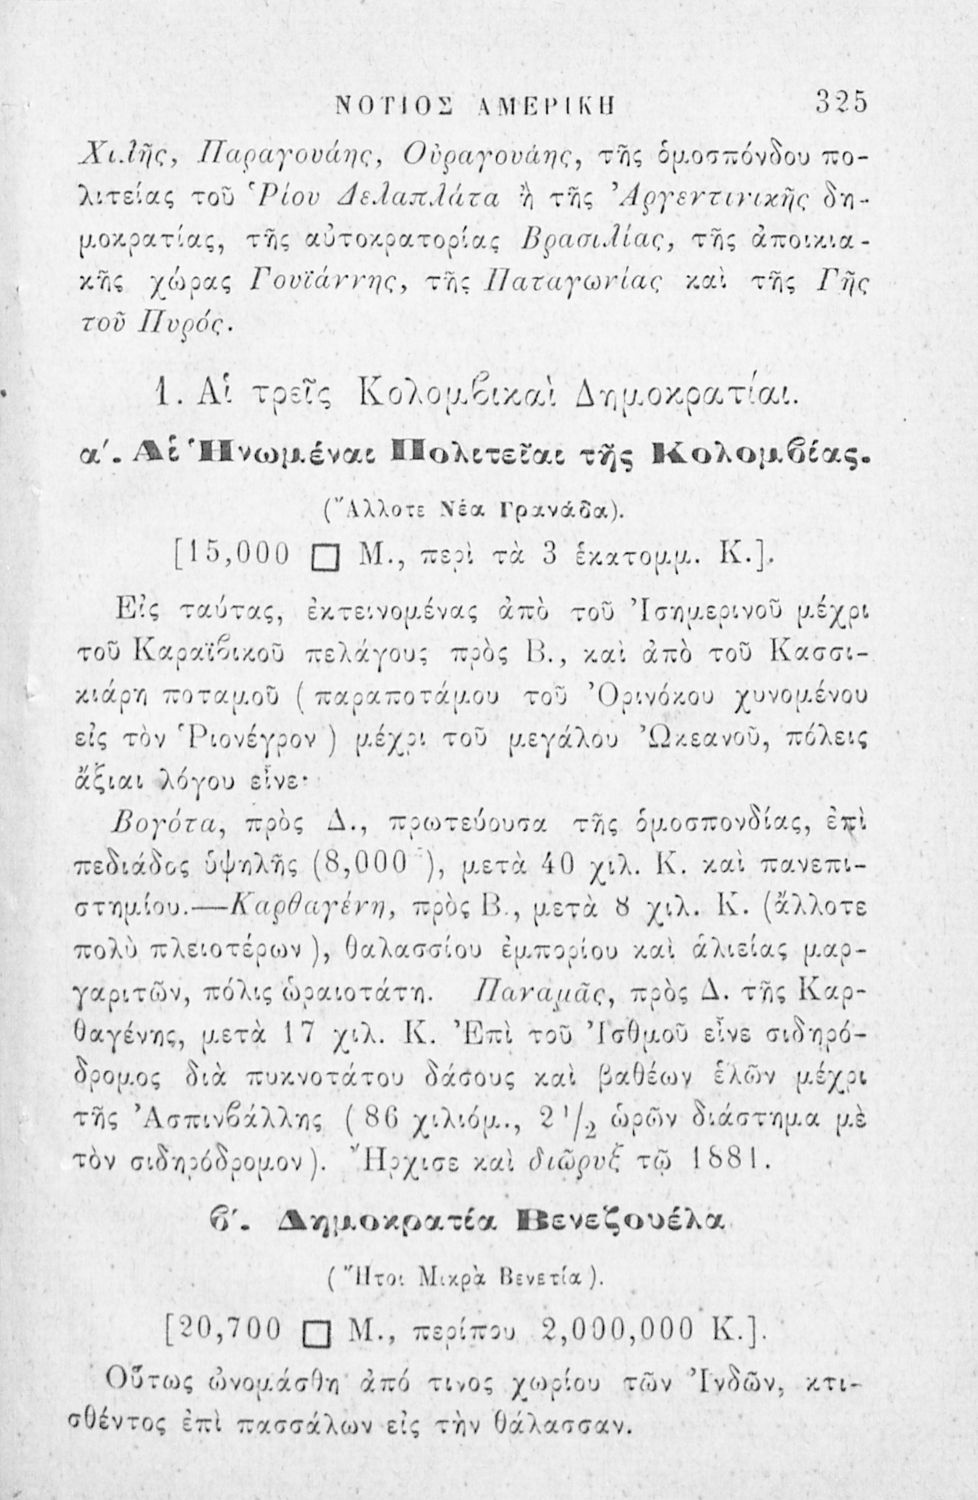 ΝΟΤΙΟΣ ΑΜΕΡΙΚΗ 325
Χιλῆς, Παραγουάης, Οὐραγουάης, τῆς ὁμοσπόνδου πο-
λιτείας τοῦ Ῥίου Δελαπλάτα ἢ τῆς Ἀργεντινικῆς δη-
μοκρατίας, τῆς αὐτοκρατορίας Βρασιλίας, τῆς ἀποικια-
κῆς χώρας Γουϊάννης, τῆς Παταγωνίας καὶ τῆς Γῆς
τοῦ Πυρός.
1. Αἱ τρεῖς Κολομϐικαὶ Δημοκρατίαι.
α΄. Αἱ Ἡνωμέναι Πολιτεῖαι τῆς Κολομϐίας.
(Ἄλλοτε Νέα Γρανάδα).
[15,000 □ Μ., περὶ τὰ 3 ἑκατομμ. Κ.].
Εἰς ταύτας, ἐκτεινομένας ἀπὸ τοῦ Ἰσημερινοῦ μέχρι
τοῦ Καραϊϐικοῦ πελάγους πρὸς Β., καὶ ἀπὸ τοῦ Κασσι-
κιάρη ποταμοῦ (παραποτάμου τοῦ Ὀρινόκου χυνομένου
εἰς τὸν Ῥιονέγρον) μέχρι τοῦ μεγάλου Ὠκεανοῦ, πόλεις
ἄξιαι λόγου εἶνε·
Βογότα, πρὸς Δ., πρωτεύουσα τῆς ὁμοσπονδίας, ἐπὶ
πεδιάδος ὑψηλῆς (8,000 ), μετὰ 40 χιλ. Κ. καὶ πανεπι-
στημίου.—Καρθαγένη, πρὸς Β., μετὰ 8 χιλ. Κ. (ἄλλοτε
πολὺ πλειοτέρων), θαλασσίου ἐμπορίου καὶ ἁλιείας μαρ-
γαριτῶν, πόλις ὡραιοτάτη. Παναμᾶς, πρὸς Δ. τῆς Καρ-
θαγένης, μετὰ 17 χιλ. Κ. Ἐπὶ τοῦ Ἰσθμοῦ εἶνε σιδηρό-
δρομος διὰ πυκνοτάτου δάσους καὶ βαθέων ἑλῶν μέχρι
τῆς Ἀσπινϐάλλης (86 χιλιόμ., 2 1/2 ὡρῶν διάστημα μὲ
τὸν σιδηρόδρομον). Ἤρχισε καὶ διῶρυξ τῷ 1881.
ϐ΄. Δημοκρατία Βενεζουέλα
(Ἤτοι Μικρὰ Βενετία).
[20,700 □ Μ., περίπου 2,000,000 Κ.].
Οὕτως ὠνομάσθη ἀπό τινος χωρίου τῶν Ἰνδῶν, κτι-
σθέντος ἐπὶ πασσάλων εἰς τὴν θάλασσαν.